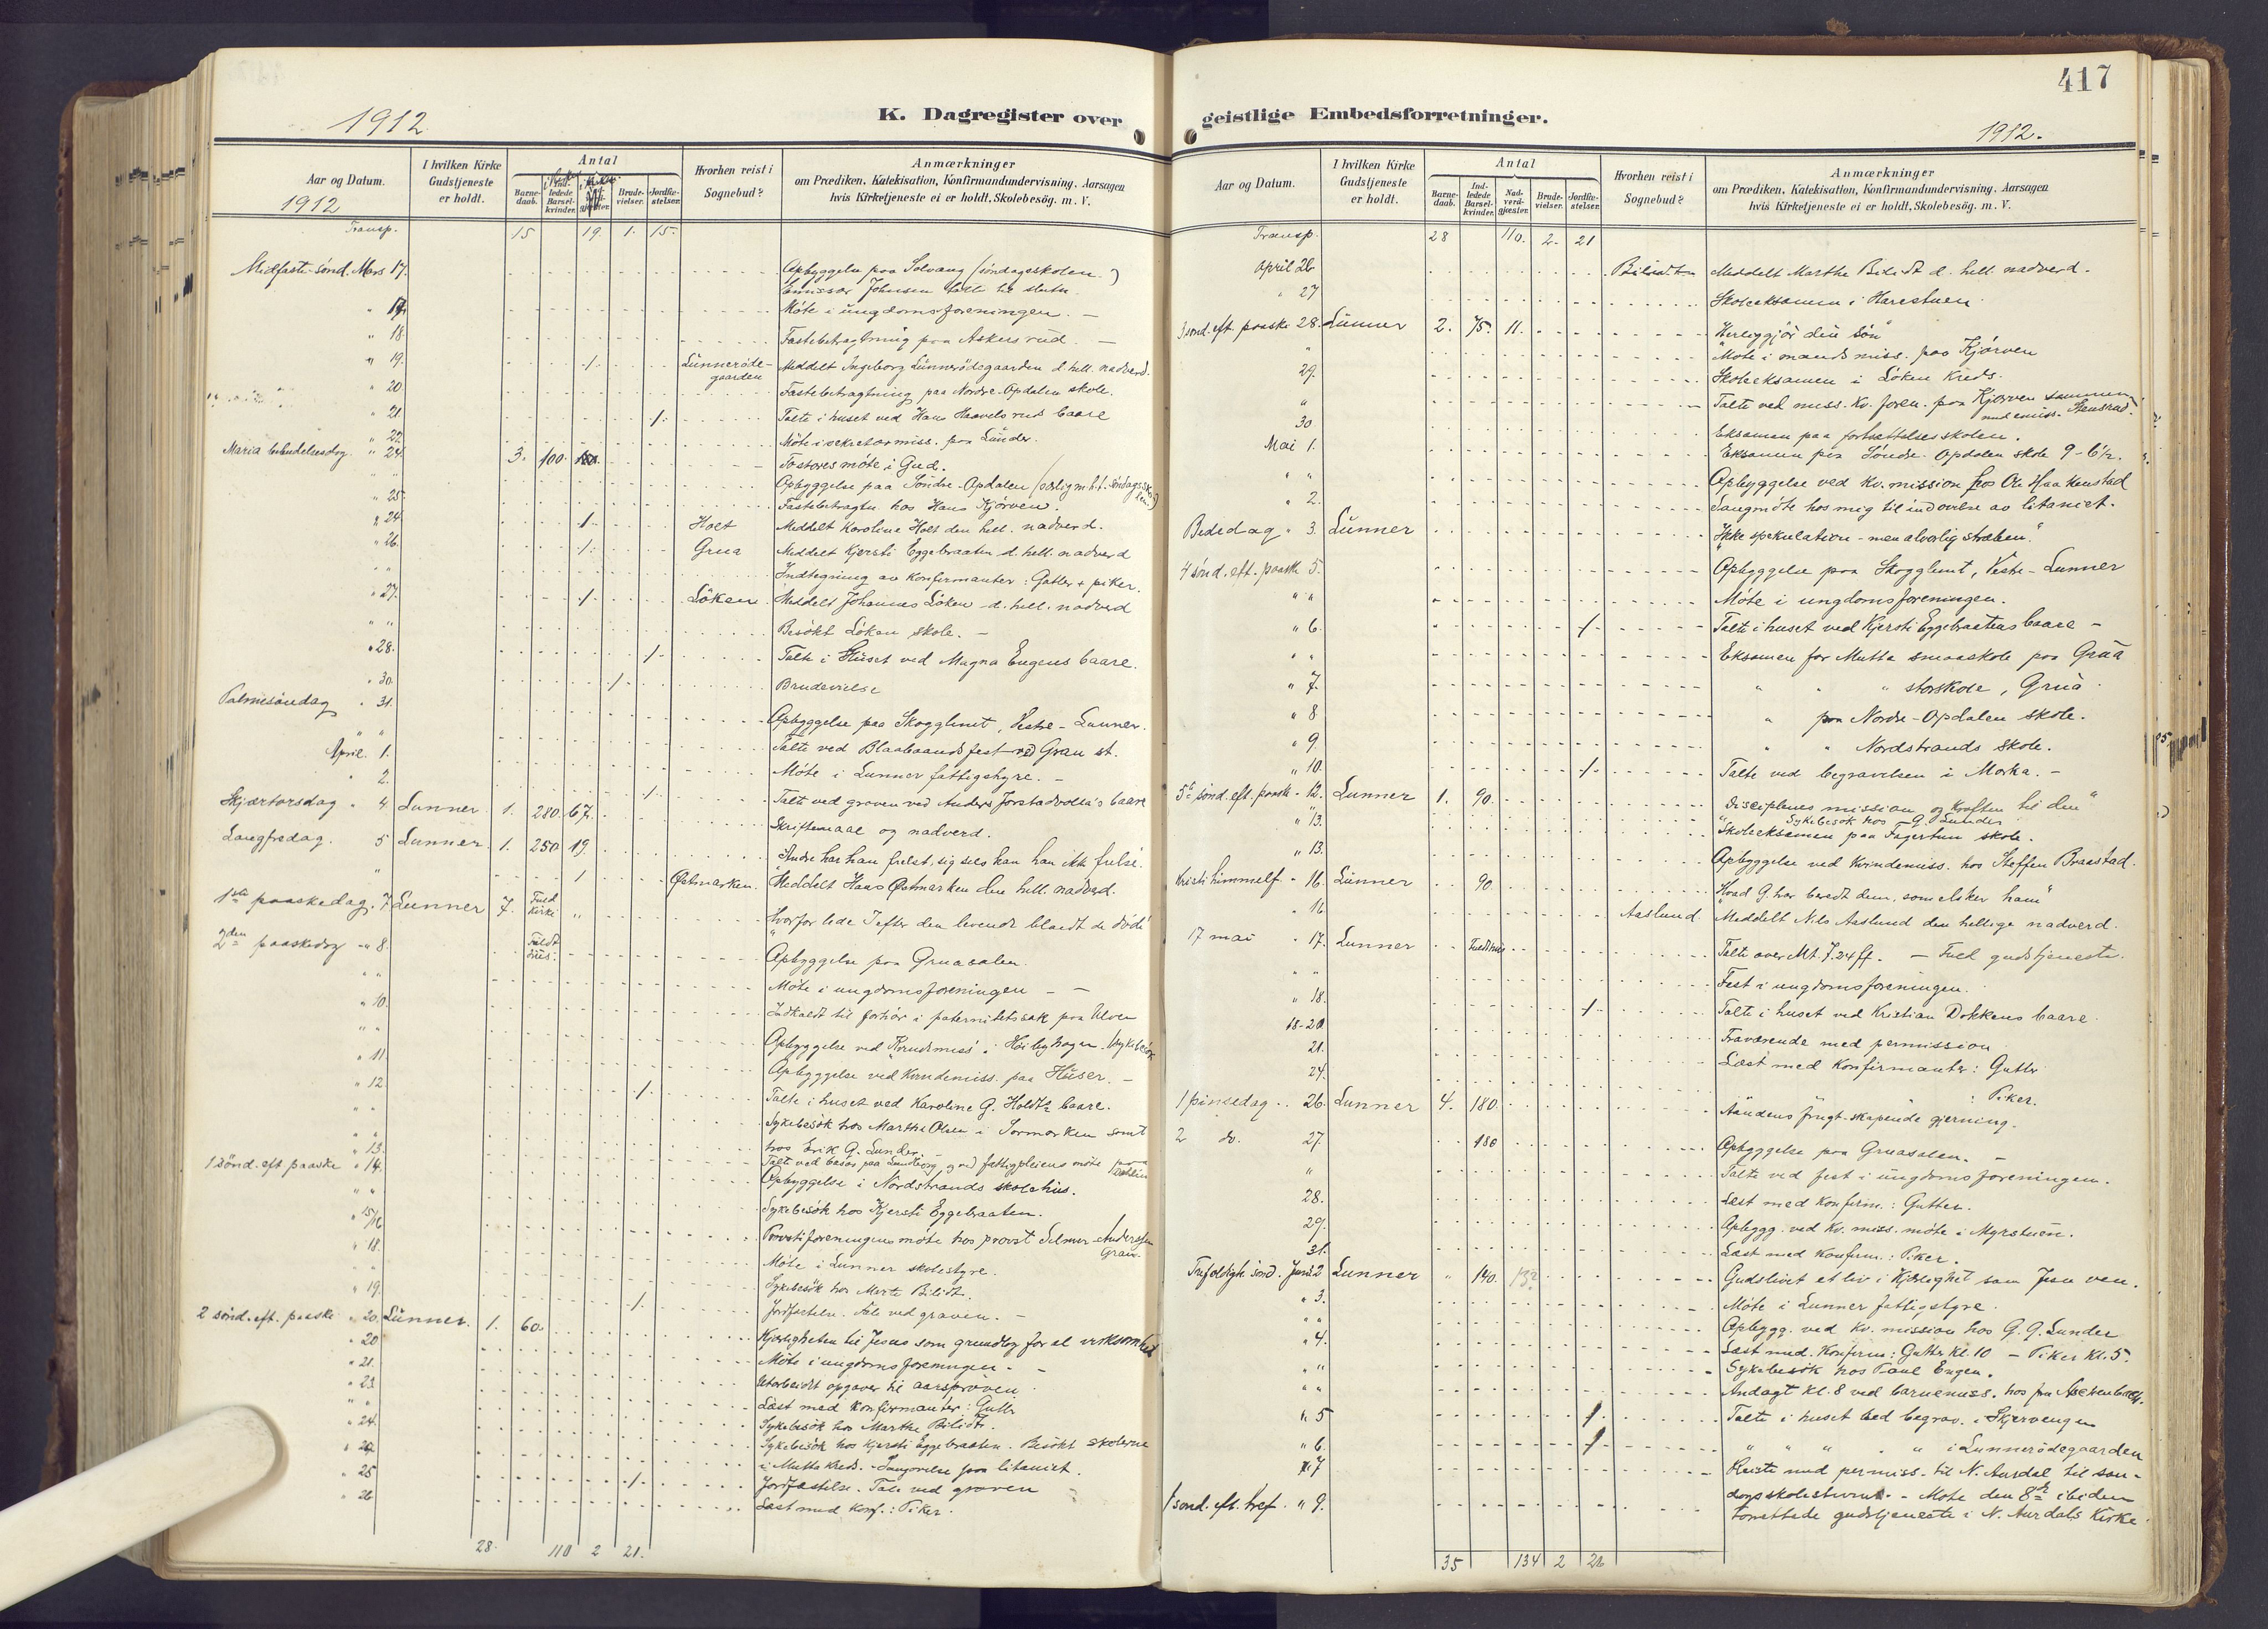 417
1912
K. Dagregister over
geistlige Embedsforretninger.
1912.
Aar og Datum.
1912
I hvilken Kirke Gudstjeneste er holdt.
Antal
Barne-daab.
Ind-ledede Barsel-kvinder.
Brude-vielser.
Jordfæ-stelser.
Hvorhen reist i Sognebud?
Anmærkninger
om Prædiken, Katekisation, Konfirmandundervisning, Aarsagen
hvis Kirketjeneste ei er holdt, Skolebesög. m. V.
Transp. 15 19. 1. 15.
Midfaste-sönd. Mars 17. Opbyggelse paa Solvang (söndagsskolen.)
Emissær Johnsen talte til slutn.
" 17. Möte i ungdomsforeningen. –
" 18. Fastebetragtning paa Askersrud. –
" 19. 1. Lunneröde-gaarden Meddelt Ingeborg Lunnerödegaarden d. hell. nadverd.
" 20 Fastebetragtning paa Nordre-Opdalen skole.
" 21. 1. Talte i huset ved Hans Haavelsrud baare
" 22 Möte i sekretærmiss. paa Lunder.
Maria bebudelsesdag. " 24. 3. 100. Fastoresmöte i Gud.
Opbyggelse paa Söndre-Opdalen
" 25 Fastebetragtn. hos Hans Kjörven.
" 24 1. Holt Meddelt Karoline Holt den hell. nadverd.
" 26. 1. Grua Meddelt Kjersti Eggebraaten d. hell. nadverd
" " Indtegning av konfirmanter: Gutter + piker.
" 27. 1. Löken Meddelt Johannes Löken d. hell. nadverd
" " Besökt Löken skole. –
" 28. 1. Talte i Huset ved Magna Engens baare.
" 30. 1. Brudevielse
Palmesöndag " 31. Opbyggelse paa Skogglimt, Vestre-Lunner.
" " Talte ved Blaabaandsfest ved Gran st.
April. 1. Möte i Lunner fattigstyre. –
" 2. 1. Talte ved graven ved Anders Jorstadvolla's baare
Skjærtorsdag " 4 Lunner. 1. 280. 67. Skriftemaal og nadverd.
Langfredag. 5 Lunner. 1. 250 19. Andre har han frelst, sig selv kan han ikke frelse.
" 1 Østmarken. Meddelt Hans Østmarken den hell. nadverd.
1ste paaskedag. 7 Lunner 7. Fuld Kirke " Hvorfor lede I efter den levende blandt de döde
2den paaskedag " 8. Fuldt hus. Opbyggelse paa Gruasalen.
" " Möte i ungdomsforeningen – –
" 10. Indkaldt til forhör i paternitetssak paa Ulven
" " Opbyggelse ved Kvindmiss. i Höibyhagen. Sykebesök
" 11. Opbyggelse ved Kvindemiss. paa Huser. –
" 12 1. Talte i huset ved Karoline G. Holdts baare.
" " Sykebesök hos Marthe Olsen i Sormarken samt
hos Erik G. Lunder. –
" 13. Talte ved besög paa Lundborg og ved fattigpleiens möte
1 sönd. eft paaske " 14. Opbyggelse i Nordstrands skolehus.
" " Sykebesök hos Kjersti Eggebraaten.
" 15/16 Provstiforeningens möte hos provst Selmer-Anderssen Gran.
" 18. Möte i Lunner skolestyre.
" " Sykebesök hos Marte Bilidt.
" 19. 1. Jordfæstelse. Tale ved graven. –
2 sönd. eft. paaske. " 20. Lunner. 1. 60. Kjærligheten til Jesus som grundlag for al virksomhet
" 20 Möte i ungdomsforeningen. –
" 21. Utarbeidet opgaver til aarspröven.
" 23 Læst med konfirmanter: Gutter
" " Sykebesök hos Marthe Bilidt.
" 24. Sykebesök hos Kjersti Eggebraaten. Besökt skolerne
i Mutta kreds. – Sangövelse paa litaniet.
" 25 1. Jordfæstelse. Tale ved graven
" 26 Læst med konf.: Piker.
28. 110 2 21.
Aar og Datum.
I hvilken Kirke Gudstjeneste er holdt.
Antal
Barne-daab.
Ind-ledede Barsel-kvinder.
Nad-verd-gjæster.
Brude-vielser.
Jordfæ-stelser.
Hvorhen reist i Sognebud?
Anmærkninger
om Prædiken, Katekisation, Konfirmandundervisning, Aarsagen
hvis Kirketjeneste ei er holdt, Skolebesög. m. V.
Transp. 28 110. 2. 21
April 26 Bilidt Meddelt Marthe Bilidt d. hell. nadverd.
" 27 Skoleeksamen i Harestuen.
3 sönd. eft. paaske 28. Lunner 2. 75. 11. "Herliggjör din sön"
" Möte i mands miss. paa Kjörven
29. Skoleeksamen i Löken kreds.
" Talte ved miss. kv. foren. paa Kjörven sammen
med emiss. Stensrud.
30 Eksamen paa fortsættelsesskolen.
Mai 1. Eksamen paa Söndre Opdalen skole 9–6½.
" " Opbyggelse ved kv. mission hos Ole Haakenstad
" 2. Sangmöte hos mig til indövelse av litaniet.
Bededag " 3. Lunner "Ikke spekulation – men alvorlig stræben."
4 sönd. eft. paaske 5. Opbyggelse paa Skogglimt, Vestre-Lunner
" " Möte i ungdomsforeningen.
" 6. 1. Talte i huset ved Kjersti Eggebraatens baare –
" " Eksamen for Mutta smaaskole paa Grua
" 7. " " " storskole, Grua.
" 8 " paa Nordre-Opdalen skole.
" 9. " " Nordstrands skole.
" 10. 1. Talte ved begravelsen i Morka. –
5te sönd. eft. paask. " 12. Lunner 1. 90. Disciplenes mission og kraften til den"
" 13. Sykebesök hos G. Lunder
Skoleeksamen paa Fagertun skole.
" 13. Opbyggelse ved Kvindemiss. hos Steffen Braastad.
Kristi himmelf. " 16. Lunner 90. "Hvad G. har beredt dem, som elsker ham"
" 16 Aaslund Meddelt Nils Aaslund den hellige nadverd.
17 mai " 17. Lunner Fuldt hus Talte over Mt. 7.24 ff. – Fuld gudstjeneste.
" " Fest i ungdomsforeningen.
" 18. 1. Talte i huset ved Kristian Dokkens baare.
18-20 Fraværende med permission
21. Læst med Konfirmanter: Gutter
24. : Piker.
1 pinsedag. 26. Lunner 4. 180. Aandens frugt-skapende gjerning.
2 do. 27. 180 Opbyggelse paa Gruasalen. –
" Talte ved fest i ungdomsforeningen.
28. Læst med Konfirm.: Gutter.
29. Opbygg. ved kv. miss. möte i Myrstuen.
31. Læst med Konfirm.: Piker.
Trefoldigh. sönd. Juni 2 Lunner " 140. 132 Gudslivet et liv i Kjærlighet som Jesu ven.
" 3. Möte i Lunner fattigstyre.
" " Opbygg. ved kv. mission hos G. G. Lunder
" 4. Læst med Konfirm: Gutter kl. 10 – Piker kl. 5.
" " Sykebesök hos Paul Engen.
" " Andagt kl. 8 ved barnemiss. hos fru
" 5 1. Talte i huset ved begrav. i Skjervengen
" 6. 1. " " " " i Lunnerödegaarden
" 7 Reiste med permiss. til N. Aurdal til sön-
dagsskolestevne. – Möte den 8de ibiden
1 sönd. eft. tref. " 9. forrettede gudstjeneste i N. Aurdals kirke.
35 134 2 26